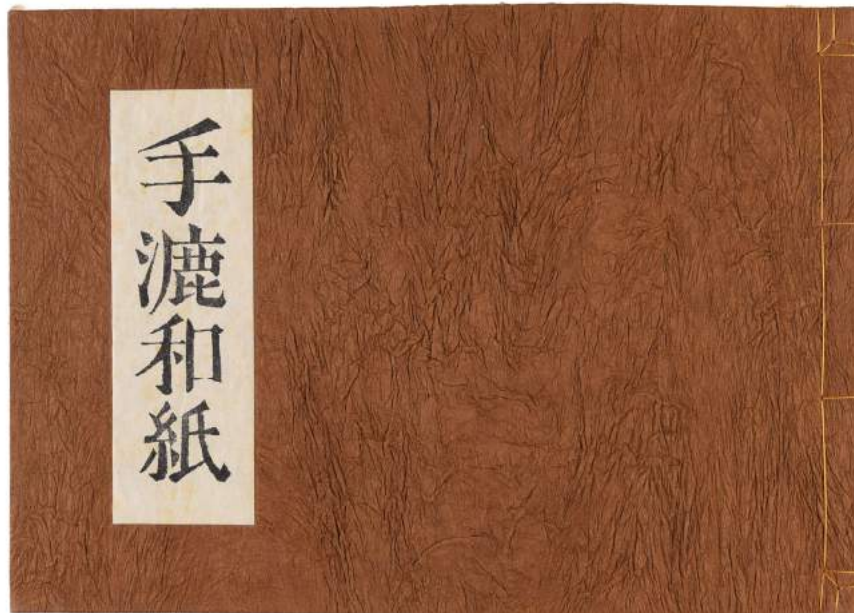 手漉和紙